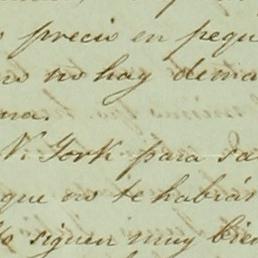 precio en pequ
no hay dema
N. York para sa
que no te habrán
siguen muy bien